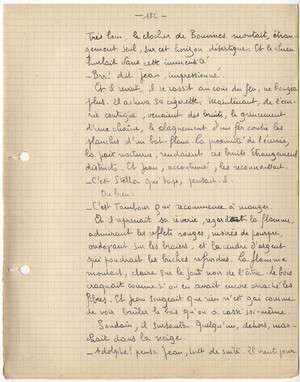 — 182 —
Très loin, le clocher de Bouvines montait, étran-
gement seul, sur cet horizon désertique. Et le chien
hurlait dans cette immensité
— Brr! dit Jean, impressionné.
Et il revint, il se rassit au coin du feu, ne bougea
plus. Il acheva sa cigarette. Maintenant, de l'écu-
rie contiguë, venaient des bruits, le grincement
d'une chaîne, le claquement d'un fer contre les
planches d'un bat-flanc. La proximité de l'écurie,
la paix nocturne, rendaient ces bruits étrangement
distincts. Et Jean, accoutumé, les reconnaissait.
— C'est Stella qui tape, pensait-il.
Ou bien:
— C'est Tambour qui recommence à manger.
Et il reprenait sa rêverie, regardait la flamme,
admirant les reflets rouges, moirés de pourpre,
ondoyant sur les braises, et la cendre d'argent
qui poudrait les bûches refroidies. La flamme
montait, claire sur le fond noir de l'âtre. Le bois
craquait comme si on en avait encore arraché les
fibres. Et Jean songeait que rien n'est gai comme
de voir brûler le bois qu'on a cassé soi-même.
Soudain, il sursauta. Quelqu'un, dehors, mar-
chait dans la neige.
— Adolphe! pensa Jean, tout de suite. Il vient pour